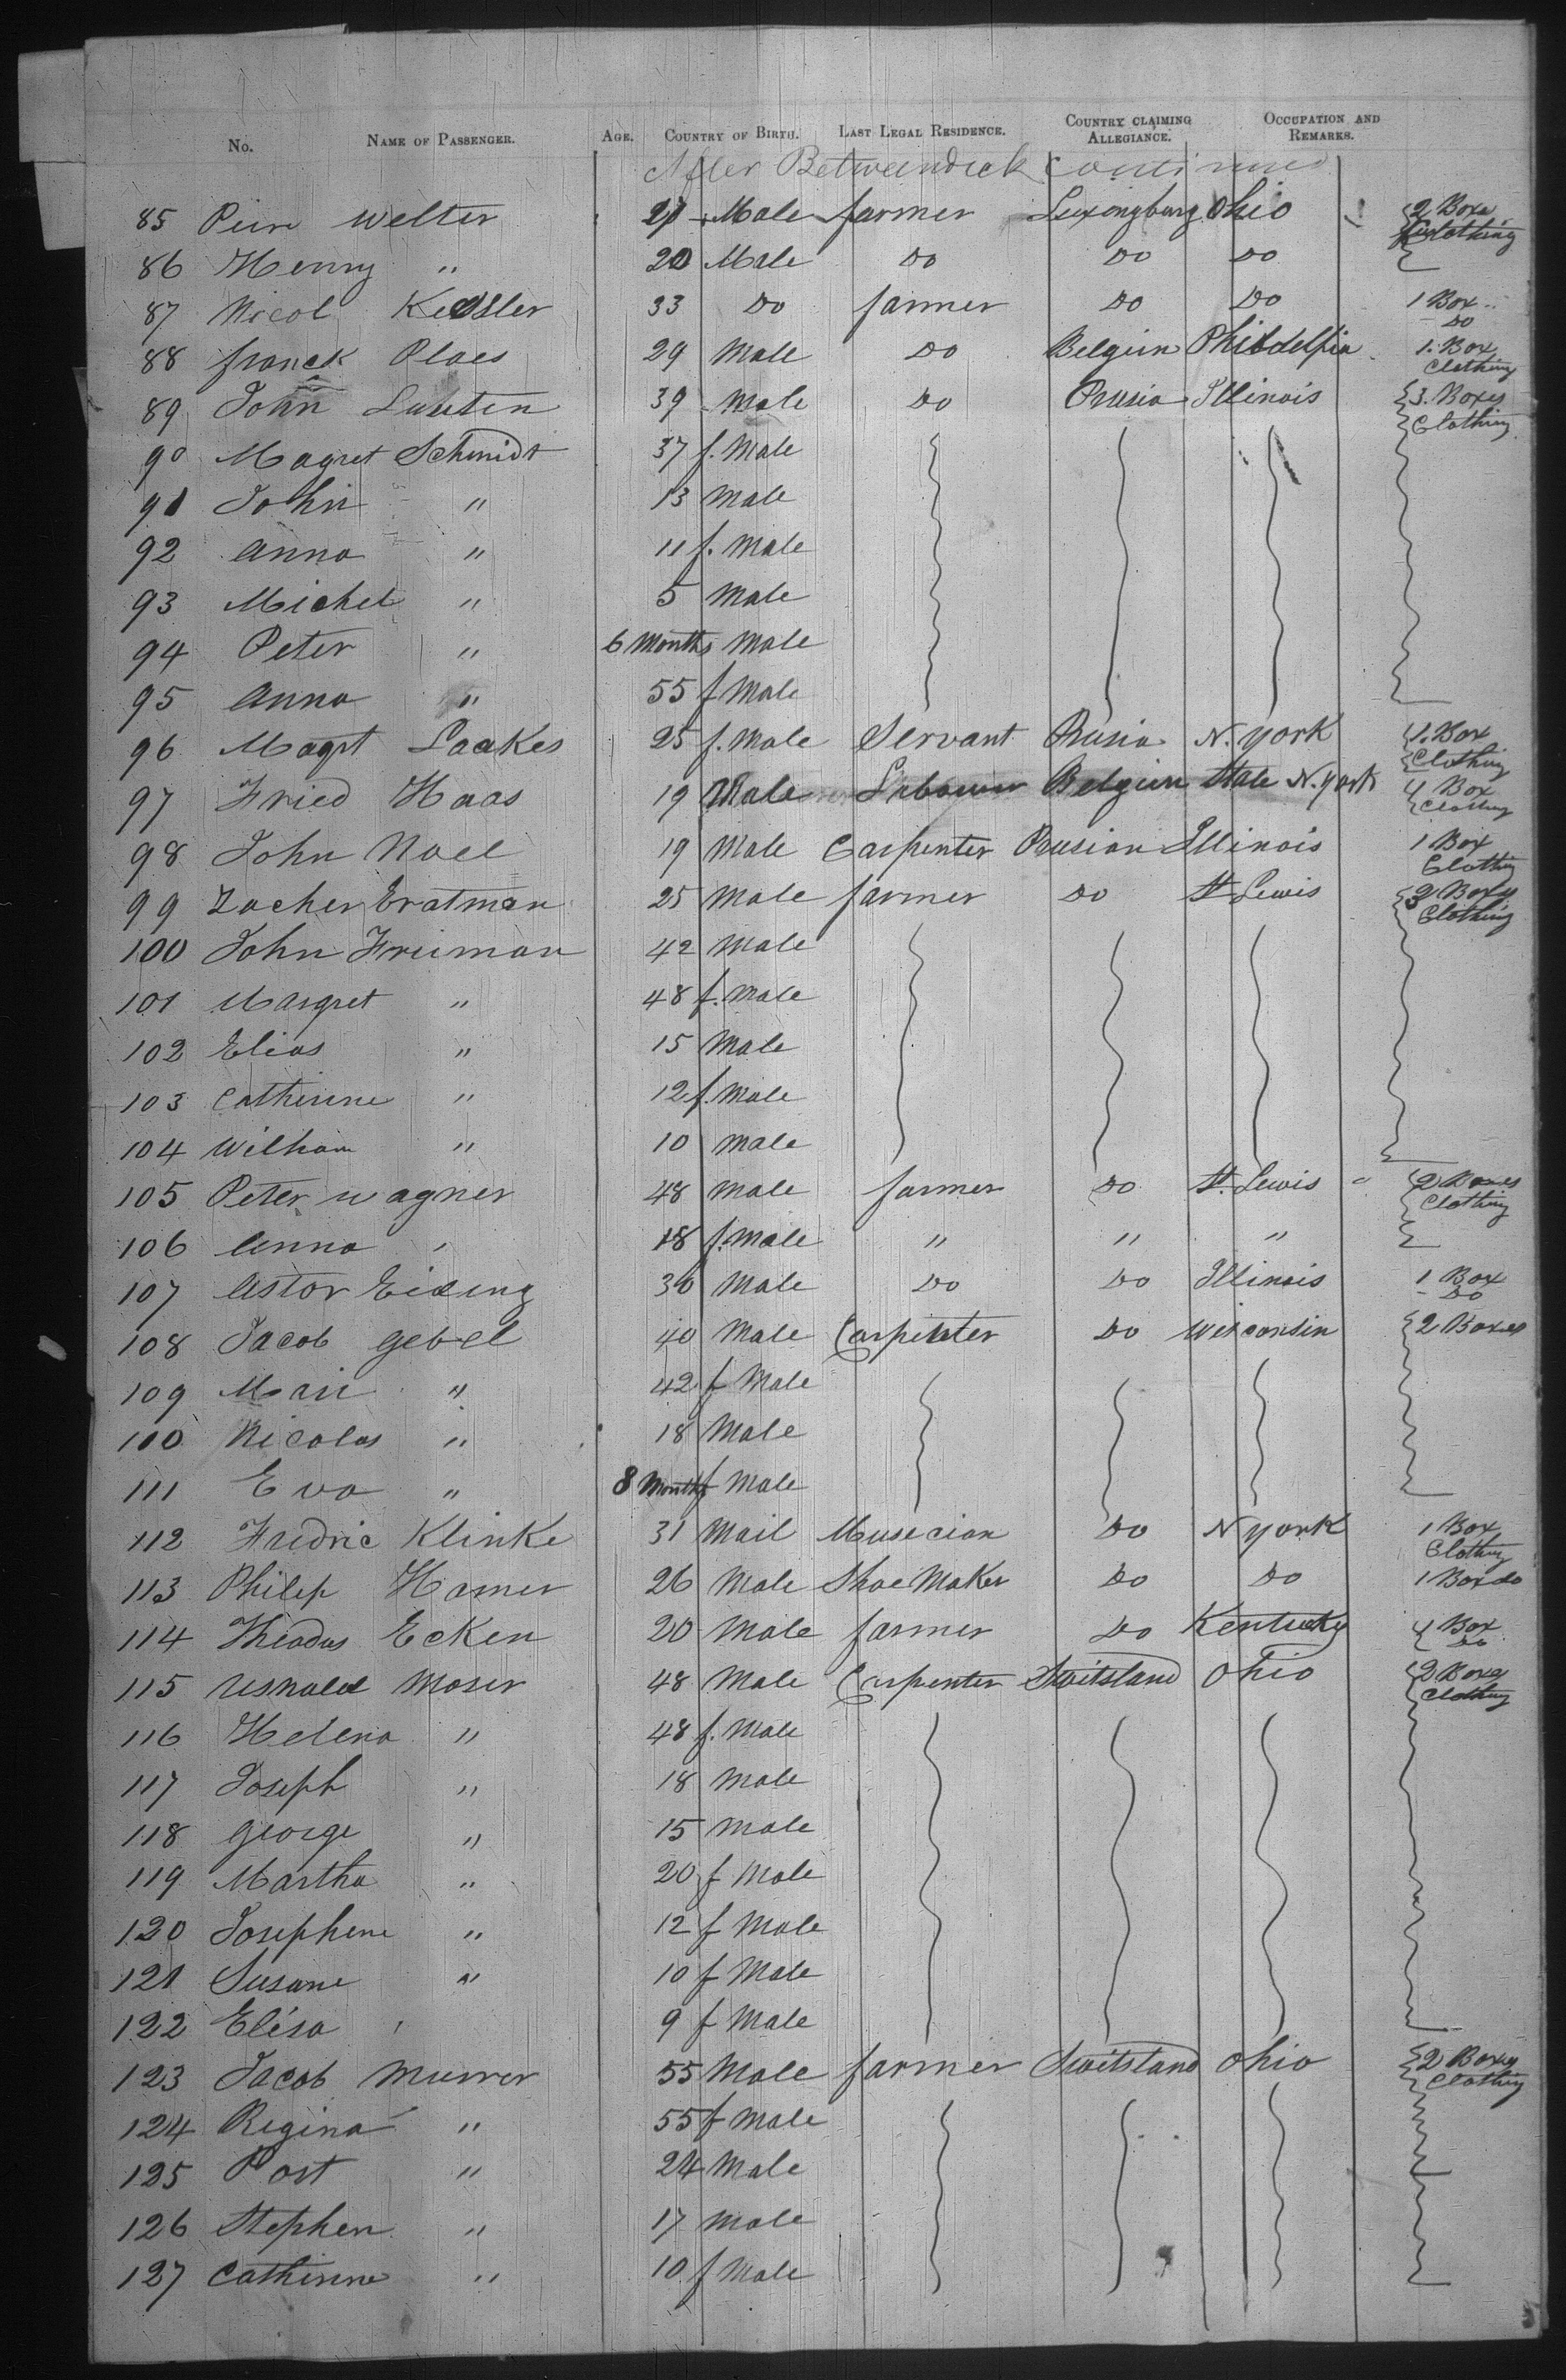 No. NAME OF PASSENGER. AGE. COUNTRY OF BIRTH. LAST LEGAL RESIDENCE. COUNTRY CLAIMING ALLEGIANCE. OCCUPATION AND REMARKS.
After Betweendeck continued
85 Welter Male farmer Luxingburg Ohio 2 Boxe Clothing
86 Henry " 20 Male Do Do Do
87 Nicol Kessler 33 Do farmer Do Do 1 Box Do
88 franck Ploes 29 Male Do Belgien Phildelfia 1 Box Clothing
89 John Lauten 39 Male Do Prusia Illinois 3 Boxes Clothing
90 Magret Schmidt 37 f. Male
91 John " 13 Male
92 Anna " 11 f. Male
93 Michel " 5 Male
94 Peter " 6 Months Male
95 Anna " 55 f Male
96 Magrt Laakes 25 f. Male Servant Prusia N. York 1. Box Clothing
97 Fried Haas 19 Male Labourer Belgien State N. York 1 Box Clothing
98 John Noel 19 Male Carpenter Prusian Illinois 1 Box Clothing
99 Zacher Eratman 25 Male farmer Do St Lewis 2 Boxes Clothing
100 John Frieman 42 Male
101 Margret " 48 f. Male
102 Elias " 15 Male
103 Catherine " 12 f. Male
104 William " 10 Male
105 Peter wagner 48 Male farmer Do St. Lewis 2 Boxes Clothing
106 Anna " 18 f. Male " " "
107 Astor Eiding 30 Male Do Do Illinois 1 Box Do
108 Jacob gebel 40 Male Carpenter Do Wisconsin 2 Boxes
109 Mari " 42 f Male
110 Nicolas " 18 Male
111 Eva " 8 Months f Male
112 Fredric Klinke 31 Mail Musecian Do N York 1 Box Clothing
113 Philep Hamer 26 Male Shoe Maker Do Do 1 Box do
114 Theodus Ecken 20 Male farmer Do Kentucky 1 Box Do
115 Moser 48 Male Carpenter Switsland Ohio 2 Boxes Clothing
116 Helena " 48 f. Male
117 Joseph " 18 Male
118 george " 15 Male
119 Martha " 20 f Male
120 Josephene " 12 f Male
121 Susane " 10 f Male
122 Elisa " 9 f Male
123 Jacob Murrer 55 Male farmer Switsland Ohio 2 Boxes Clothing
124 Regina " 55 f Male
125 Post " 24 Male
126 Stephen " 17 Male
127 Catherine " 10 f Male